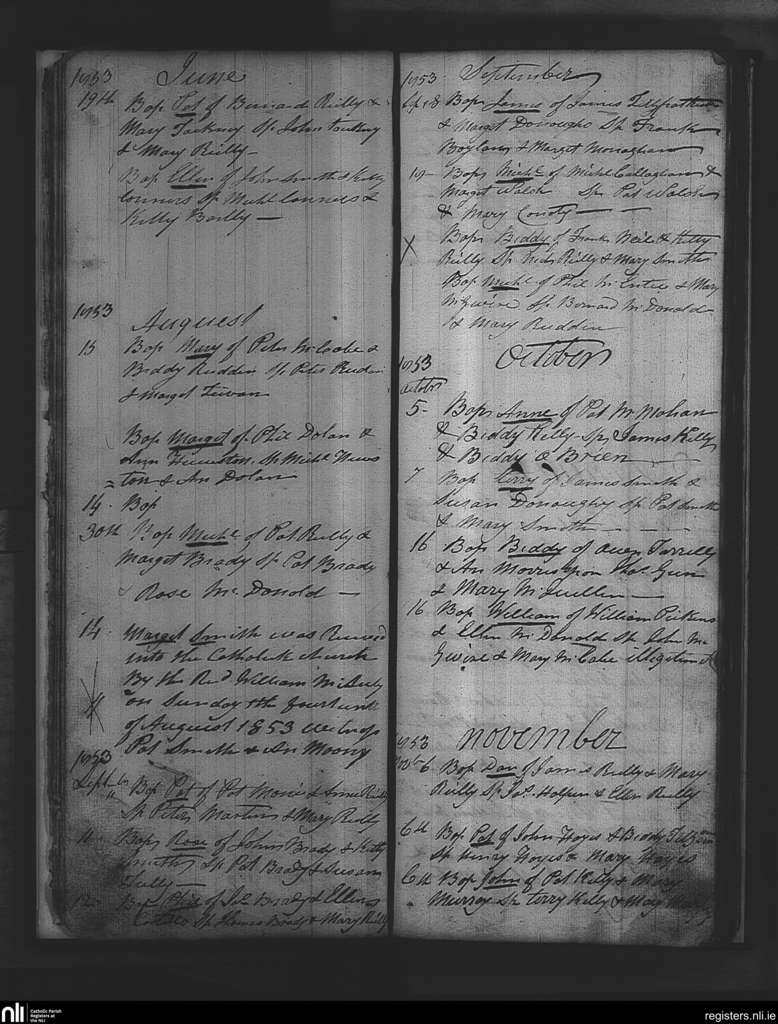 1853 June
19th Bap Pat of Bernard Reilly &
Mary Tackney Sp John Tackney
& Mary Reilly —
Bap Ellen of John Smith & Kitty
Connors Sp Michl Connors &
Kitty Bailly —
1853
Auguest
13 Bap Mary of Peter McCabe &
Biddy Rudden Sp Peter Rudden
& Marget
Bap Marget of Phil Dolan &
Ann Hewston, Sp Michl Hews
= ton & An Dolan
14. Bap
30th Bap Michl of Pat Reilly &
Marget Brady Sp Pat Brady
Rose McDonold —
14. Marget Smith was Receivd
into the Catholick church
By the Revd William
on Sunday the fourteenth
of August 1853 Witness
Pat Smith & An Moony
1853
Septembr Bap Pat of Pat & Anne Reilly
Sp Peter Martin & Mary Reilly
11 Bap Rose of John Brady & Kitty
Smith Sp Pat Brady & Susan
Tully —
12 Bap Phil of Brady & Ellen
Sp Thomas Brady & Mary Reilly
1853 September
Bap James of James
& Marget Donougho Sp Frank
Boylan & Marget Monaghan
Bap Michl of Michl Callaghan &
Marget Walsh Sp Pat Walsh
& Mary Conoty — —
X Bap Biddy of Frank Neil & Kitty
Reilly Sp Reilly & Mary Smith
Bap Michl of Phil McEntee & Mary
McGwire Sp Bernard McDonold
& Mary Rudden
1853 October
October
5 - Bap Anne of Pat McMohan
& Biddy Kelly Sp James Kelly
& Biddy O Brien —
7 Bap Terry of James Smith &
Susan Donoughy Sp Pat Smith
& Mary Smith — - -
16 Bap Biddy of Owen Farrelly
& An Morris
& Mary McQuillen —
16 Bap William of William Pickens
& Ellen McDonold Sp John Mc
Gwire & Mary McCabe illegitimat
1853 November
Novbr 6 Bap Dan of James Reilly & Mary
Reilly Sp Jas. Halpin & Ellen Reilly
6th Bap Pat of John Hoyes & Biddy
Sp Henry Hoyes & Mary Hoyes
6th Bap John of Pat Kelly & Mary
Murray Sp Terry Kelly & Mary
nli
Catholic Parish
Registers at
the NLI
registers.nli.ie